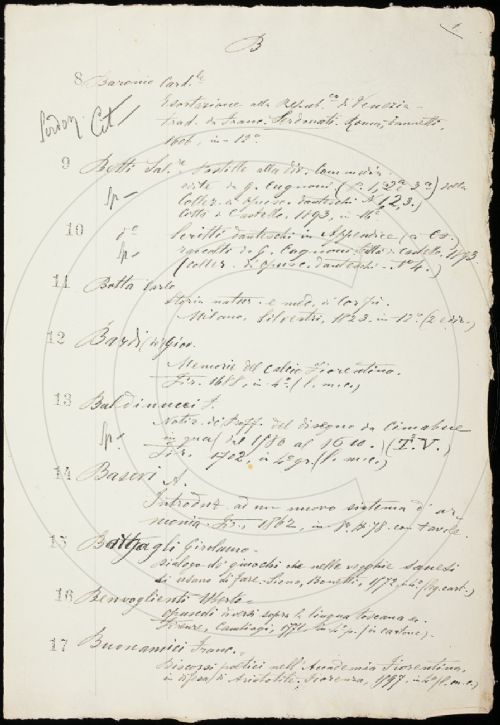 B
8 Baronio Card.le
Esortazione alla Repub.ca di Venezia -
trad. da Franc. Serdonati. Roma, Zannetti,
1606, in-12°.
Cit
9 Betti Sal.e Postille alla div. Commedia
edite da G. Cugnoni (P. 1a, 2a e 3a) della
Collez. di opusc. danteschi 1, 2, 3.)
Città di Castello, 1893, in-16°
10 d.o Scritti danteschi in Appendice (a Co.)
raccolti da G. Cugnoni Città di Castello, 1893.
(Collez. di opusc. danteschi - N° 4.)
11 Botta Carlo
Storia natur. e med. di Corfù.
Milano, Silvestri, 1823. in-12° (2a ediz.)
12 Bardi (de') Giov.
Memorie del Calcio Fiorentino.
Fir. 1688, in 4°. (l. m. c.)
13 Baldinucci F.
Notiz. de' Proff. del disegno da Cimabue
in qua (dal 1580 al 1610.) (T. V.)
Fir. 1702, in 4° gr. (l. m. c.)
14 Basevi A.
Introduz. ad un nuovo sistema d'ar-
monia. Fir., 1862, in 8°. con tavole.
15 Battagli Girolamo -
Dialogo de' giuochi che nelle vegghie sanesi
si usano di fare. Siena, Bonetti, 1572
16 Benvoglienti Uberto -
Opuscoli diversi sopra la lingua toscana
Firenze, Cambiagi, 1771
17 Buonamici Franc.
Discorsi poetici nell'Accademia Fiorentina,
in difesa di Aristotile. Fiorenza, 1597, in 4° (l. m. c.)